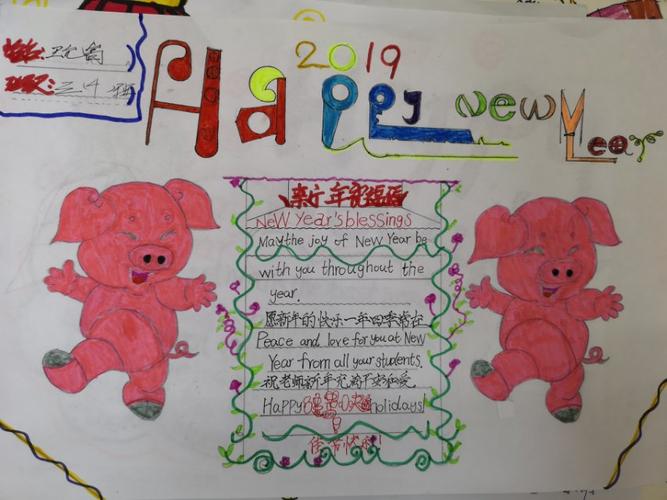 姓名:
班级:三(4)班
2019
Happy New Year
新年祝福语
New Year's blessings
May the joy of New Year be
with you throughout the
year.
愿新年的快乐一年四季常在
Peace and love for you at New
Year from all your students.
祝老师新年充满平安和爱
Happy holidays!
佳节快乐!